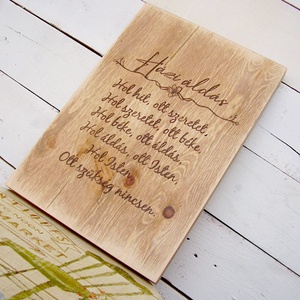 Házi áldás
Hol hit, ott szeretet,
Hol szeretet, ott béke,
Hol béke, ott áldás,
Hol áldás, ott Isten,
Hol Isten,
Ott szükség nincsen.
MARKET